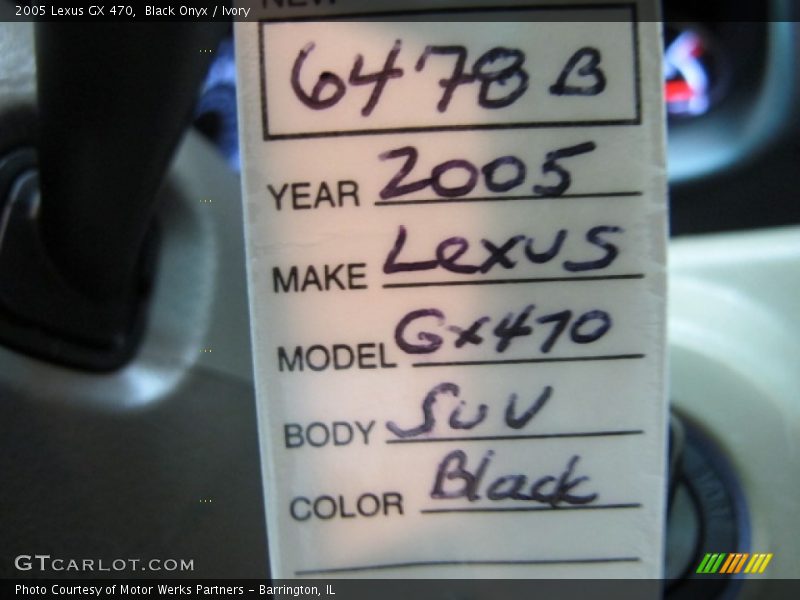 2005 Lexus GX 470, Black Onyx / Ivory
NEW
6478 B
YEAR 2005
MAKE Lexus
MODEL GX470
BODY SUV
COLOR Black
GTCARLOT.COM
Photo Courtesy of Motor Werks Partners - Barrington, IL